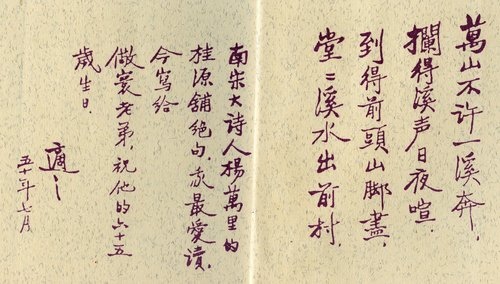 萬山不许一溪奔，
攔得溪声日夜喧．
到得前頭山脚盡，
堂〻溪水出前村．
南宋大诗人楊萬里的
桂源舖绝句，我最愛讀，
今寫给
儆寰老弟，祝他的六十五
歲生日．
適之
五十年七月